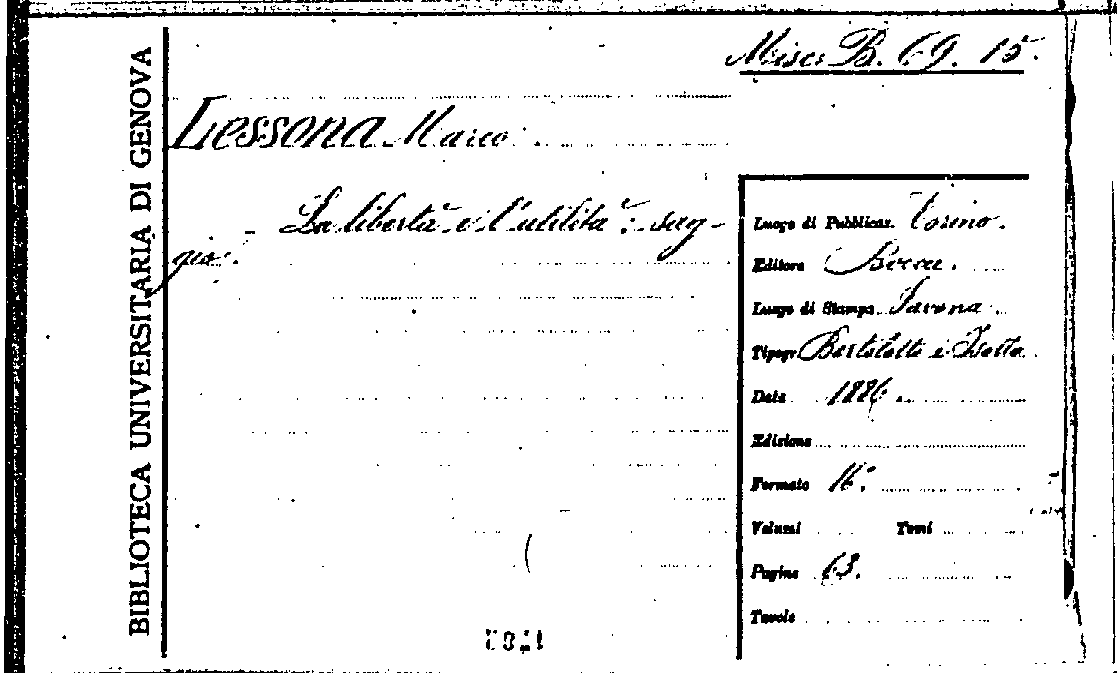 BIBLIOTECA UNIVERSITARIA DI GENOVA
Misc. B. 69. 15.
Lessona Marco.
- La libertà e l'utilità: sag-
gio.
Luogo di Pubblicaz. Torino.
Editore Bocca.
Luogo di Stampa Savona.
Tipogr. Bertolotto e Isotta
Data 1886.
Edizione
Formato 16.°
Volumi Tomi
Pagine 63.
Tavole